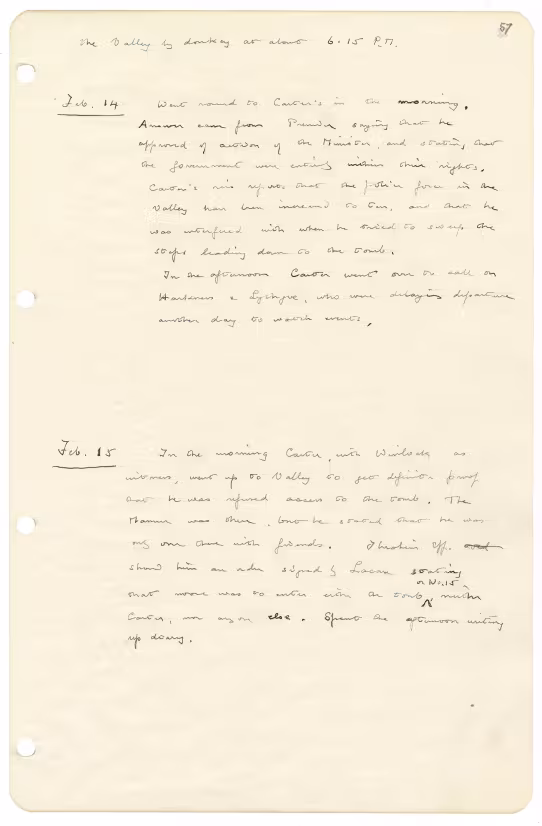 57
the Valley by donkey at about 6.15 P.M.
Feb. 14 Went round to Carter's in the morning.
Answer came from Premier saying that he
approved of action of the Minister, and stating that
the Government were entirely within their rights.
Carter's reis reports that the police force in the
Valley has been increased to ten, and that he
was interfered with when he tried to sweep the
steps leading down to the tomb.
In the afternoon Carter went over to call on
Harkness & Lythgoe, who were delaying departure
another day to watch events.
Feb. 15 In the morning Carter, with Winlock as
witness, went up to Valley to get definite proof
that he was refused access to the tomb. The
Mamur was there, but he stated that he was
only over there with friends. Ibrahim Eff.
showed him an order signed by Lacau stating
or No. 15
that none was to enter either the tomb, neither
Carter, nor anyone else. Spent the afternoon writing
up diary.